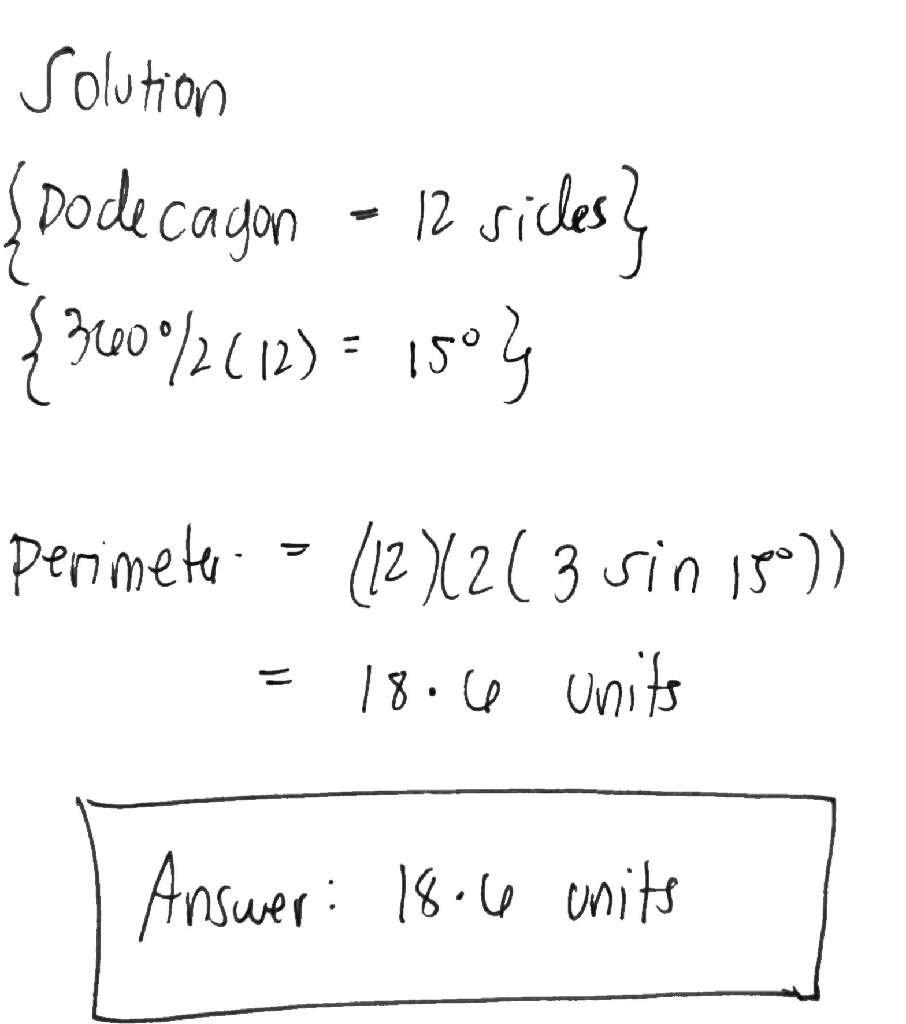 Solution
{Dodecagon - 12 sides}
{360°/2(12) = 15°}
Perimeter = (12)(2(3 sin 15°))
= 18.6 units
Answer: 18.6 units